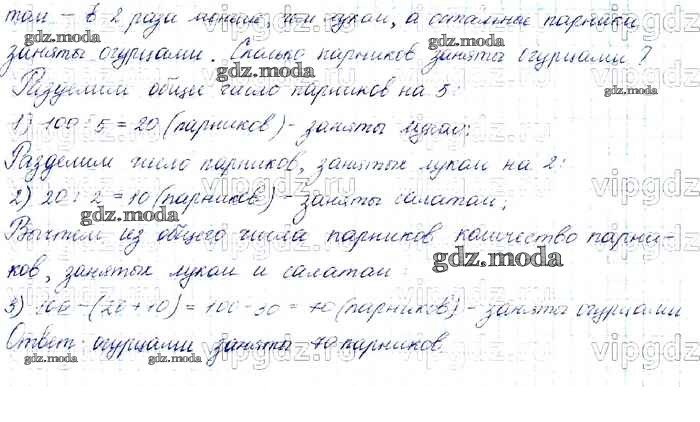 том - в 2 раза меньше, чем луком, а остальные парники
заняты огурцами. Сколько парников заняты огурцами?
gdz.moda
gdz.moda
Разделим общее число парников на 5:
1) 100 : 5 = 20 (парников) - заняты луком;
gdz.moda
gdz.moda
Разделим число парников, занятых луком на 2:
vipgdz.ru
vipgdz
2) 20 : 2 = 10 (парников) - заняты салатом;
gdz.moda
Вычтем из общего числа парников количество парни-
ков, занятых луком и салатом:
gdz.moda
gdz.moda
3) 100 - (20 + 10) = 100 - 30 = 70 (парников) - заняты огурцами
Ответ: огурцами заняты 70 парников.
vipgdz.ru
vipgdz
gdz.moda
gdz.moda